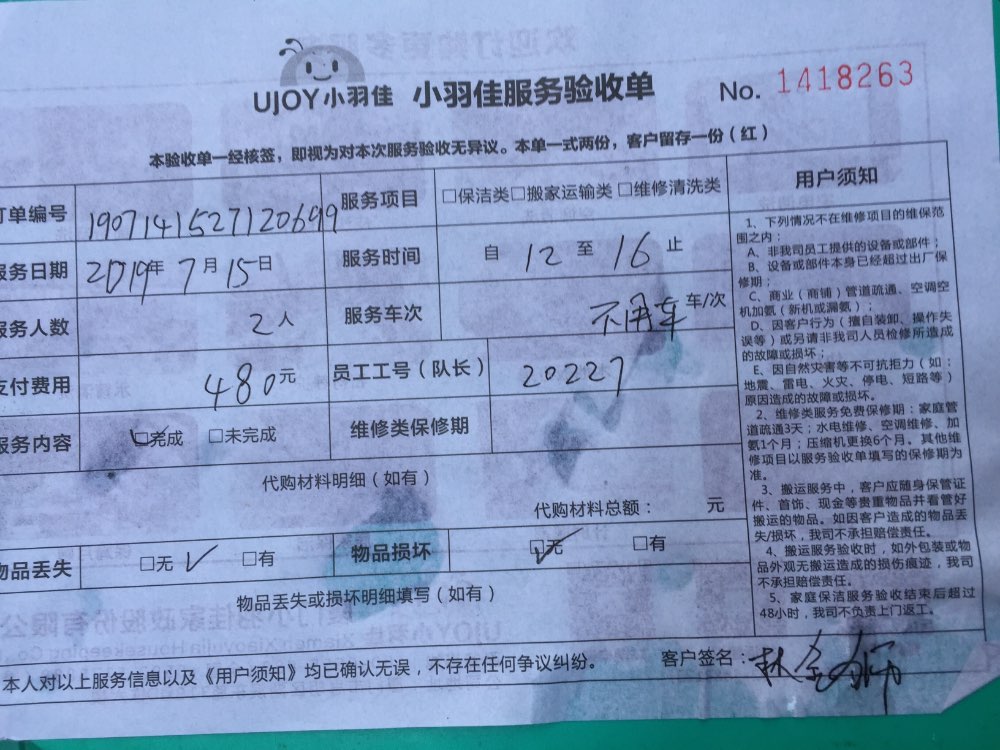 UJOY小羽佳 小羽佳服务验收单 No. 1418263
本验收单一经核签，即视为对本次服务验收无异议。本单一式两份，客户留存一份（红）
订单编号 1907141527120699 服务项目 □保洁类□搬家运输类□维修清洗类
服务日期 2019年7月15日 服务时间 自 12 至 16 止
服务人数 2人 服务车次 不用车 车/次
支付费用 480元 员工工号（队长） 20227
服务内容 □完成 □未完成 维修类保修期
代购材料明细（如有）
代购材料总额： 元
物品丢失 □无 ✓ □有 物品损坏 □无 ✓ □有
物品丢失或损坏明细填写（如有）
本人对以上服务信息以及《用户须知》均已确认无误，不存在任何争议纠纷。 客户签名：林
用户须知
1、下列情况不在维修项目的维保范
围之内：
A、非我司员工提供的设备或部件；
B、设备或部件本身已经超过出厂保
修期；
C、商业（商铺）管道疏通、空调空
机加氨（新机或漏氨）；
D、因客户行为（擅自装卸、操作失
误等）或另请非我司人员检修所造成
的故障或损坏；
E、因自然灾害等不可抗拒力（如：
地震、雷电、火灾、停电、短路等）
原因造成的故障或损坏。
2、维修类服务免费保修期：家庭管
道疏通3天；水电维修、空调维修、加
氨1个月；压缩机更换6个月。其他维
修项目以服务验收单填写的保修期为
准。
3、搬运服务中，客户应随身保管证
件、首饰、现金等贵重物品并看管好
搬运的物品。如因客户造成的物品丢
失/损坏，我司不承担赔偿责任。
4、搬运服务验收时，如外包装或物
品外观无搬运造成的损伤痕迹，我司
不承担赔偿责任。
5、家庭保洁服务验收结束后超过
48小时，我司不负责上门返工。